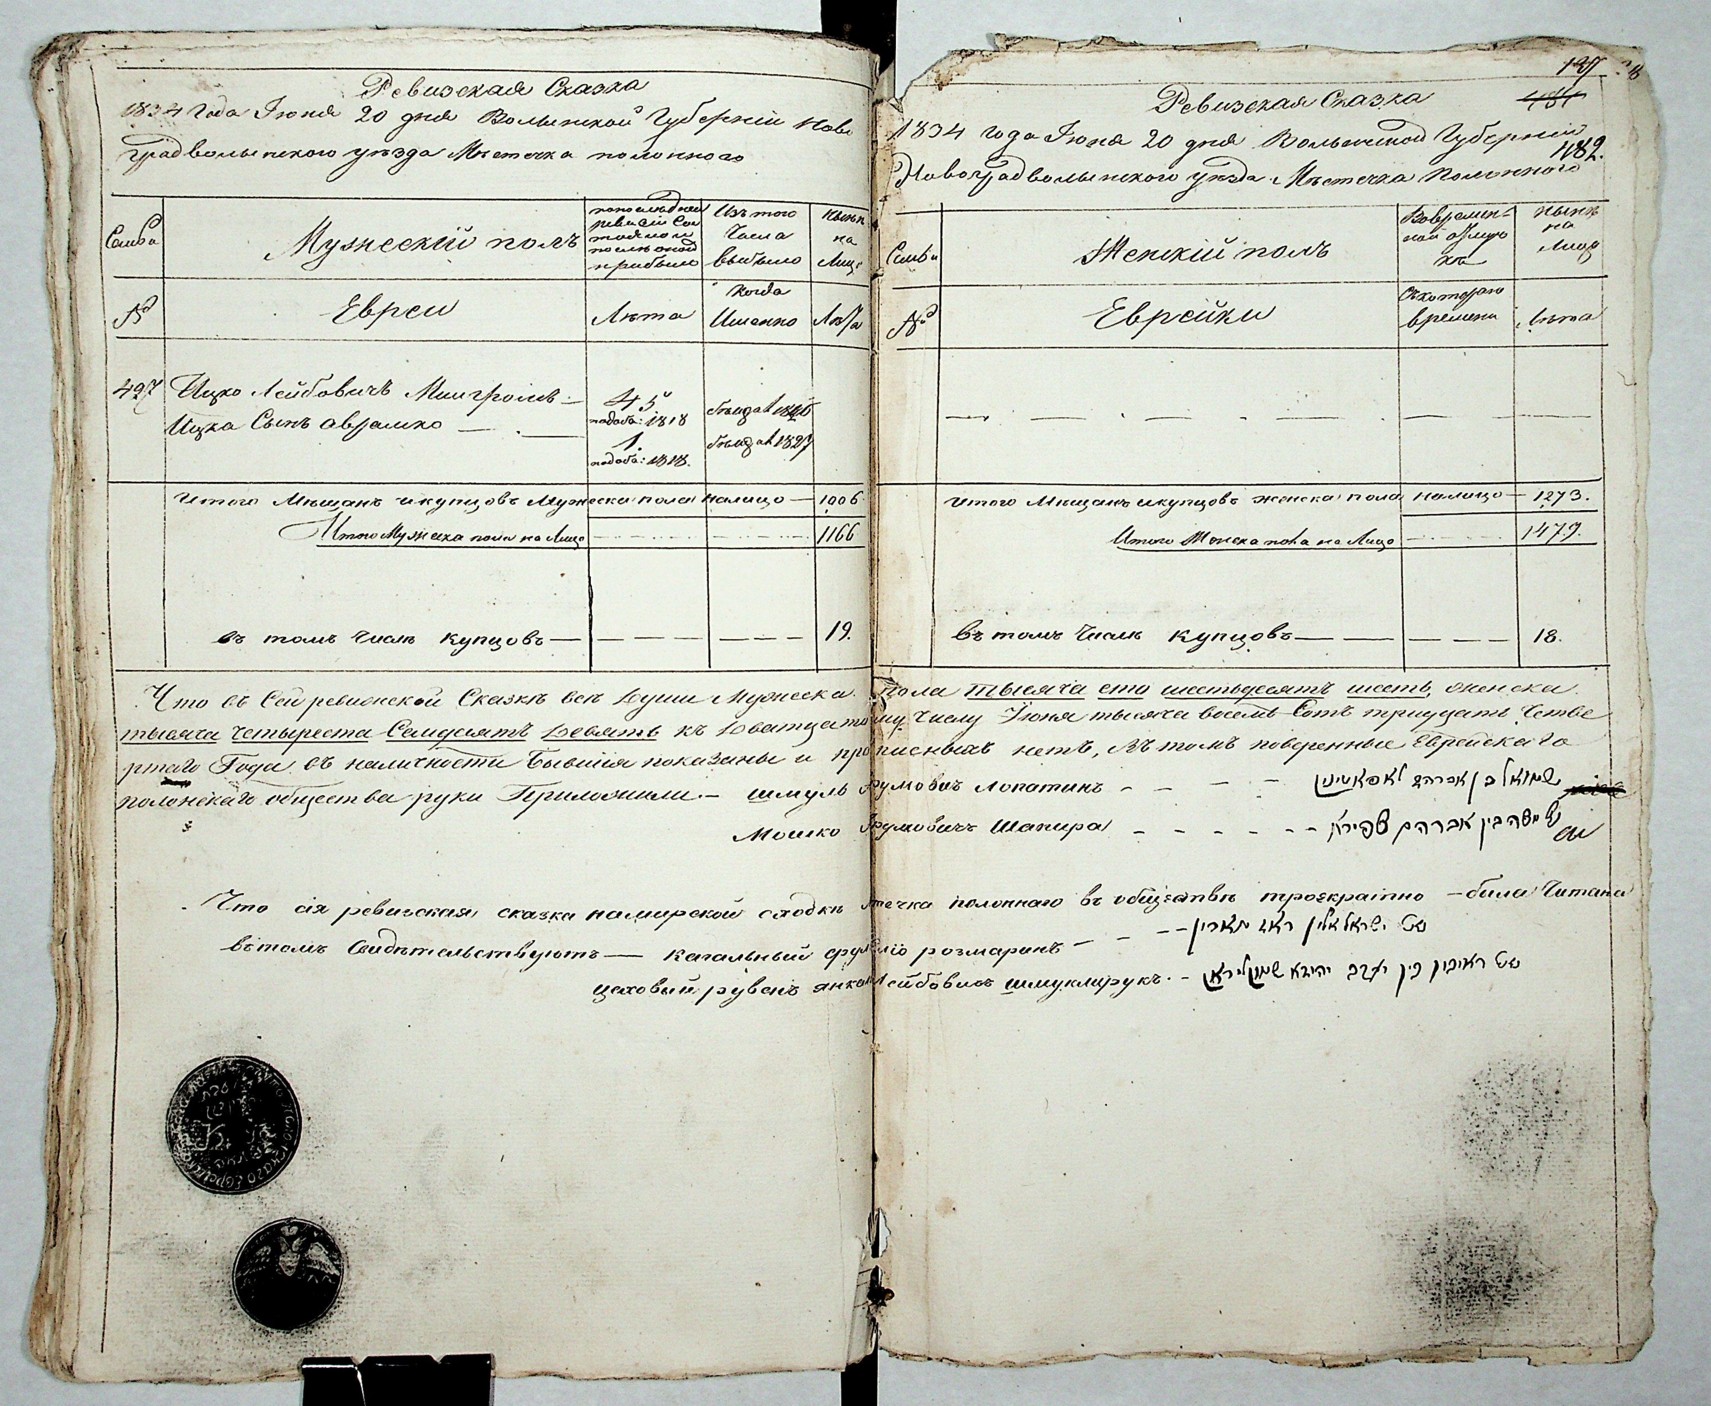 Ревизская Сказка
1834 Года Іюня 20 дня Волынской Губерніи Ново
градволынского уезда Местечка полонного
Семьи
Мужескій полъ
по последней ревизіи Состояло и после оной прибыло
Изъ того Числа выбыло
Ныне на Лицо
№
Евреи
Лета
Когда Именно
Лета
427 Ицко Лейбовичъ
45
1818
Ицка Сынъ аврамко
1.
1818.
1827
Итого Мещанъ и купцовъ Мужеска пола налицо — 1006
Итого Мужеска пола на Лицо 1166
въ томъ Числе купцовъ — 19.
137
482.
Ревизская Сказка
1834 года Іюня 20 дня Волынской Губерніи
Новоградволынского уезда Местечка Полонного
Семьи
Женскій полъ
Во временной отлучке
ныне на Лицо
№
Еврейки
Съ которого времени
Лета
Итого Мещанъ и купцовъ женска пола налицо — 1273.
Итого Женска пола на Лицо 1479.
въ томъ Числе купцовъ — 18.
Что въ Сей ревизской Сказке все Души Мужеска пола тысяча сто шестьдесятъ шесть, женска
тысяча четыреста Семдесятъ Девять къ Дватцатому Числу Іюня тысяча восемь Сотъ тридцать Четве
ртаго Года въ наличности Бывшія показаны и прописныхъ нетъ, въ томъ поверенные Еврейскаго
полонскаго общества руки Приложили — шмуль Лопатинъ — שמואל בן אברהם לאפאטינין
Мошко Шапира — משה בן אברהם שפירא
Что сія ревизская сказка на мирской сходке полонного въ обществе троекратно — была Читана
въ томъ Свидетельствуютъ — кагальный розмаринъ
цеховый рувенъ Лейбовичъ шмуклярукъ. —